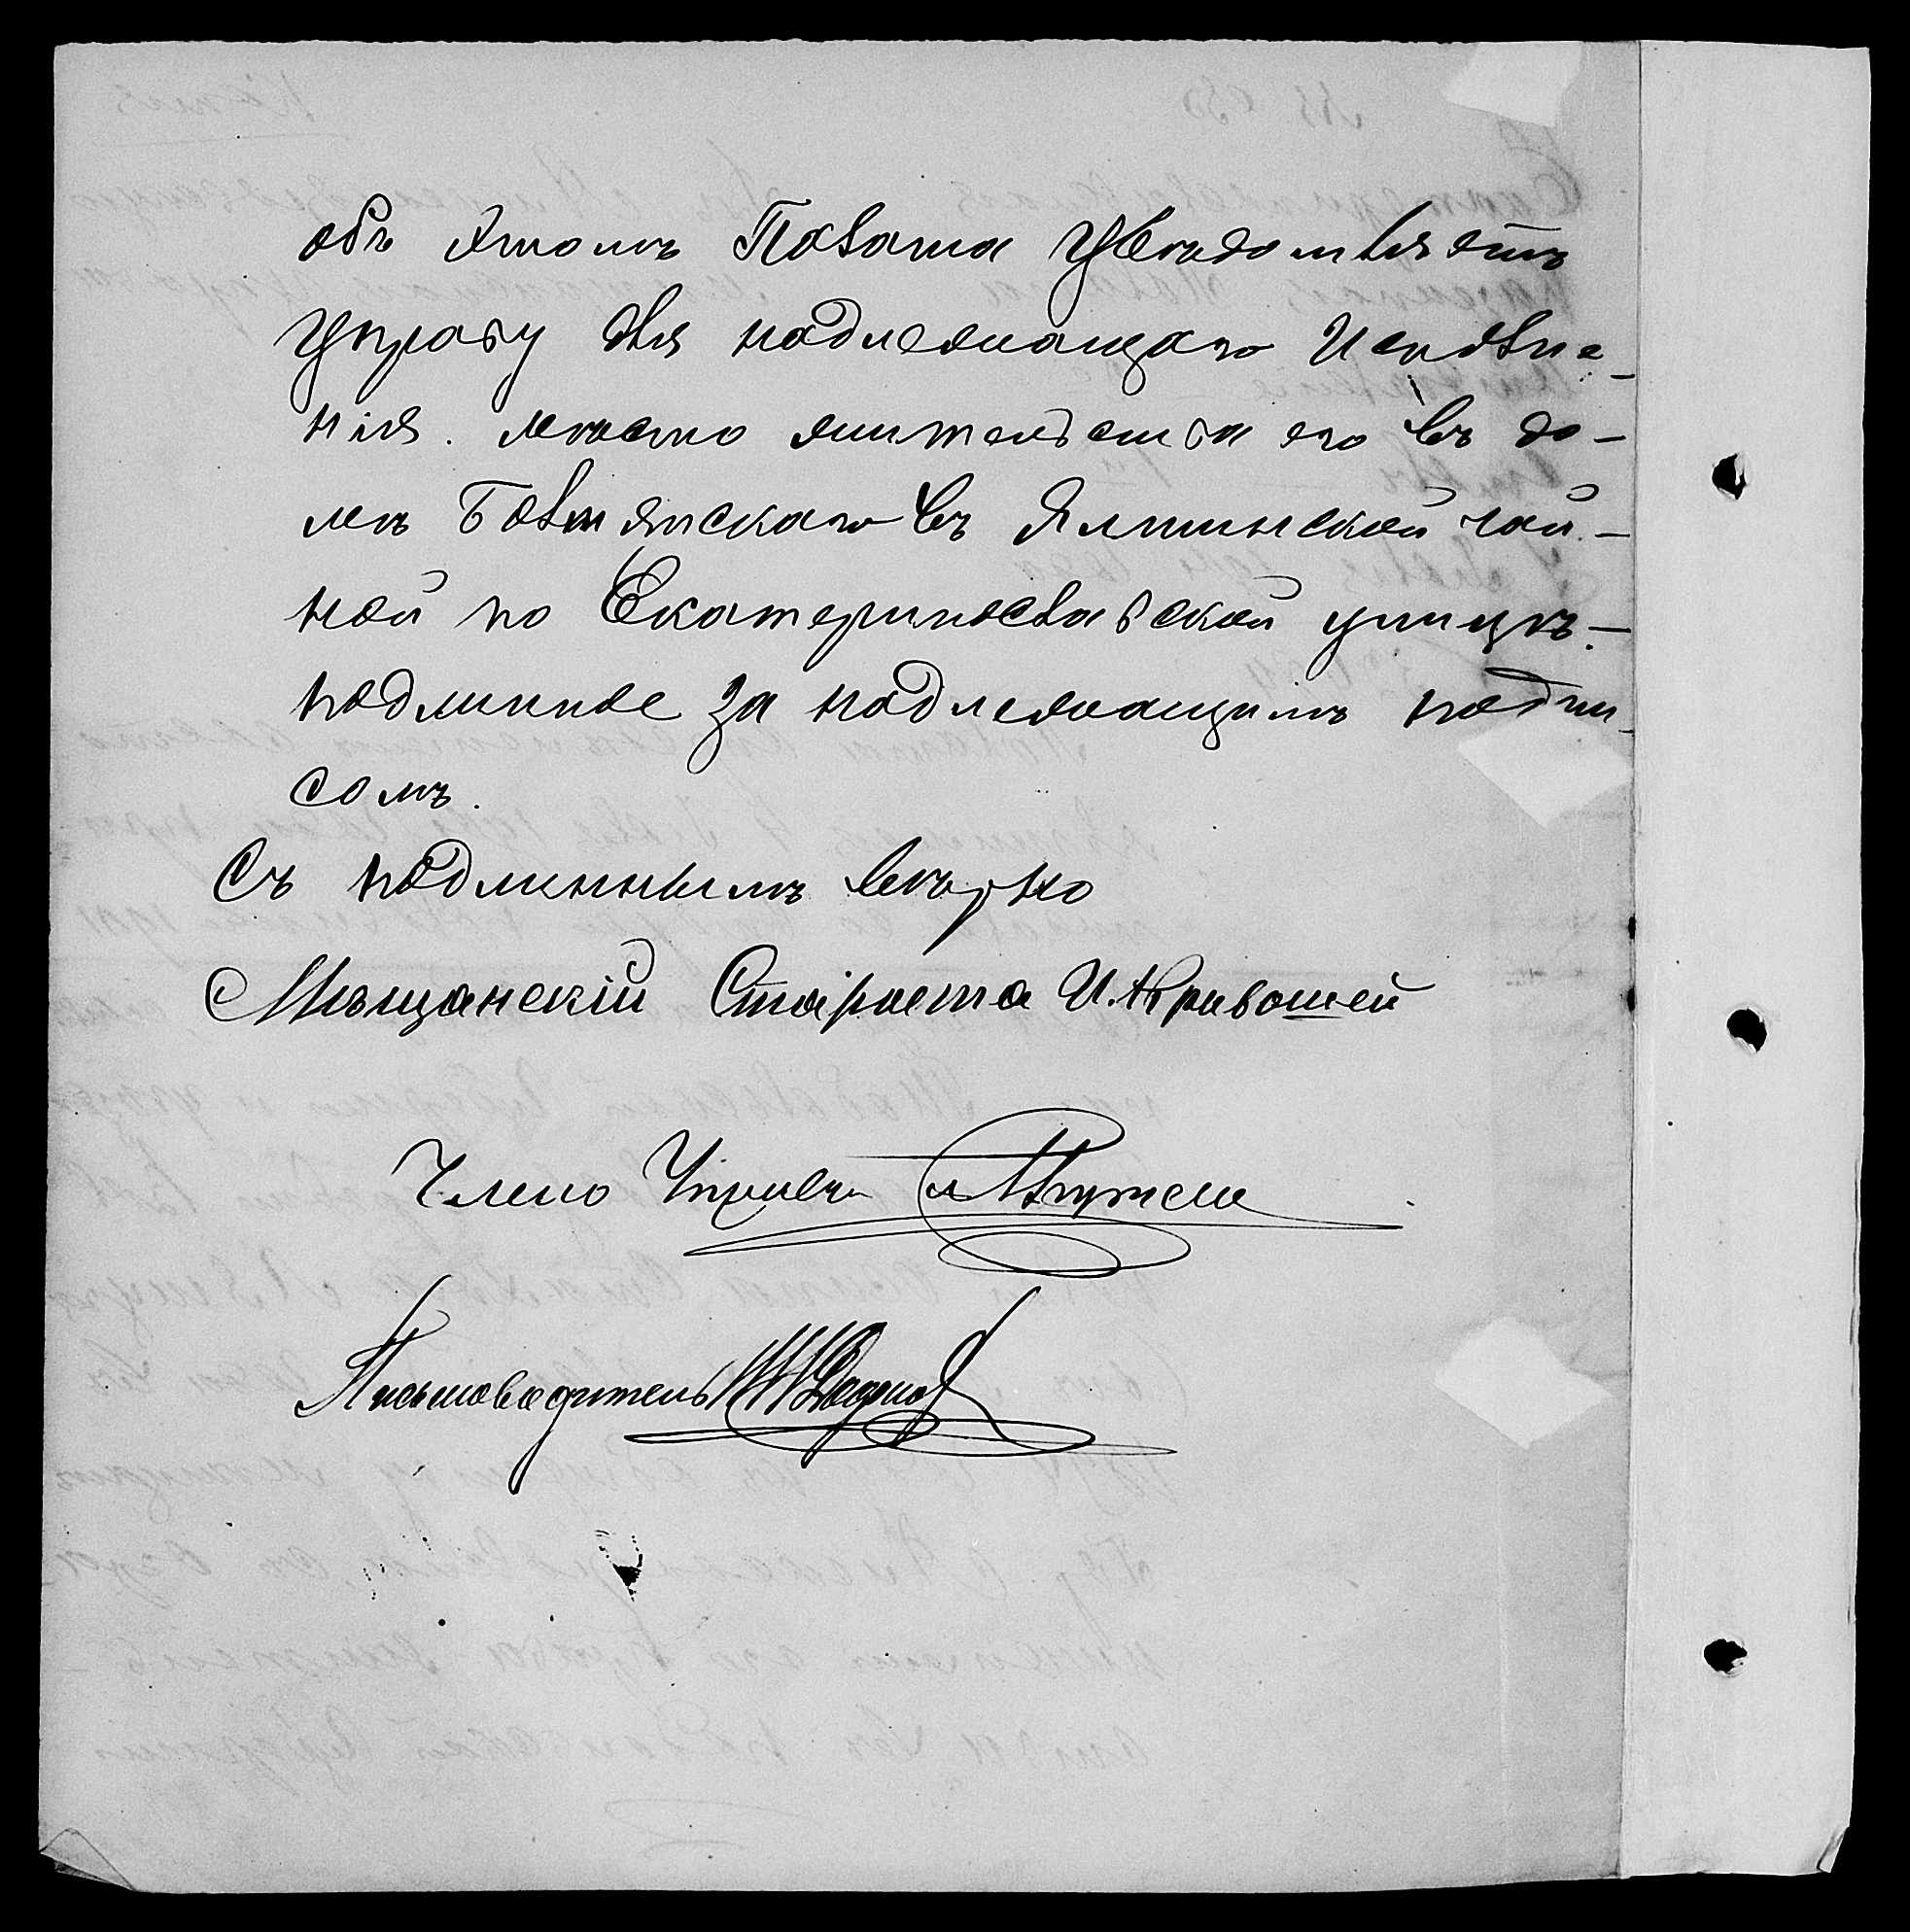 объ этомъ Палата увѣдомляетъ
Управу для надлежащаго исполне-
нія. мѣсто жительства его въ до-
мѣ Болтянскаго въ Ялтинской чай-
ной по Екатеринославской улицѣ.-
подлинное за надлежащимъ подпи-
сомъ.
Съ подлиннымъ вѣрно
Мѣщанскій Староста И. Кривошей
Членъ Управы
Письмоводитель